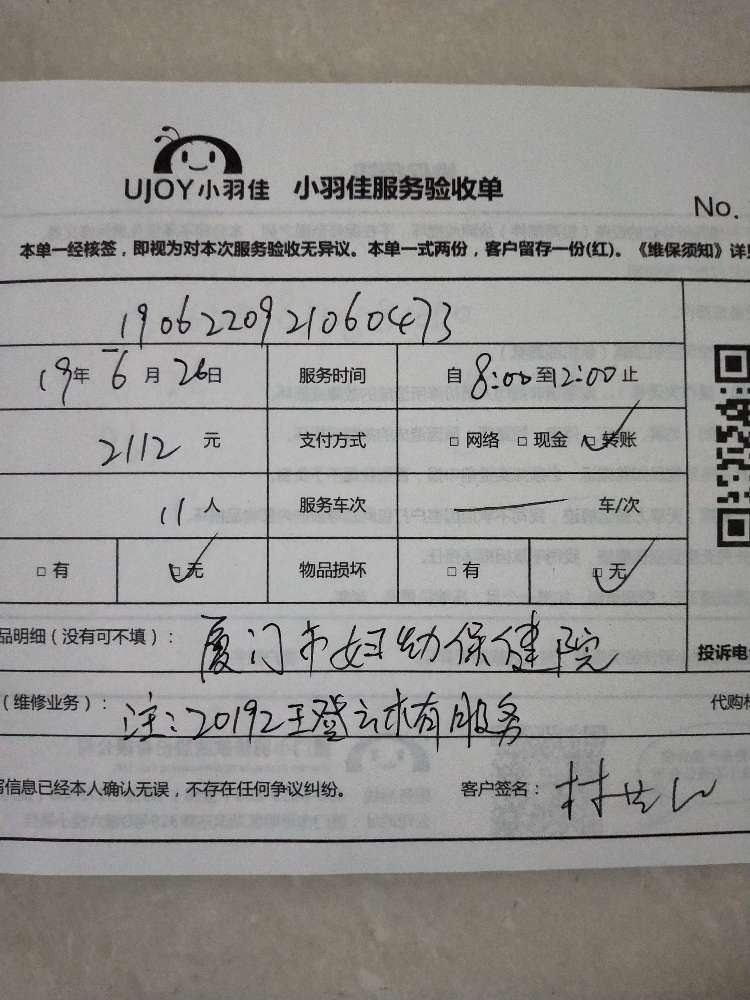 UJOY小羽佳 小羽佳服务验收单
No.
本单一经核签，即视为对本次服务验收无异议。本单一式两份，客户留存一份(红)。《维保须知》详
1906220921060473
19年 6月 26日 服务时间 自 8:00 至 12:00 止
2112 元 支付方式 □ 网络 □ 现金 □ 转账
11 人 服务车次 车/次
□ 有 □ 无 物品损坏 □ 有 □ 无
品明细（没有可不填）： 厦门市妇幼保健院
投诉电
（维修业务）： 注：20192王登云未有服务
代购
信息已经本人确认无误，不存在任何争议纠纷。 客户签名：